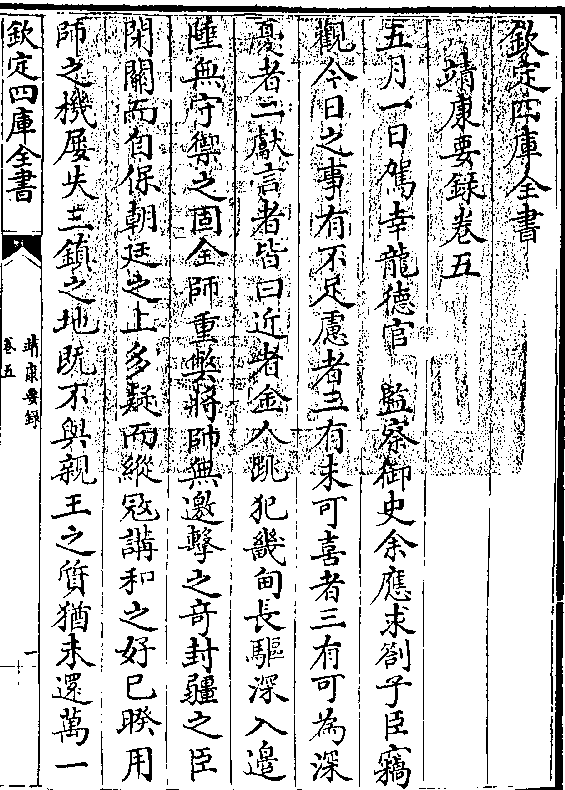 欽定四庫全書
靖康要録卷五
五月一日駕幸龍德宫　監察御史余應求劄子臣竊
觀今日之事有不足慮者三有未可喜者三有可為深
憂者二獻言者皆曰近者金人跳犯畿甸長驅深入邊
陲無守禦之固全師重獘將帥無邀擊之竒封疆之臣
閉關而自保朝廷之上多疑而縱寇講和之好已暌用
師之機屢失三鎮之地既不與親王之質猶未還萬一
欽定四庫全書
靖康要録
卷五
一